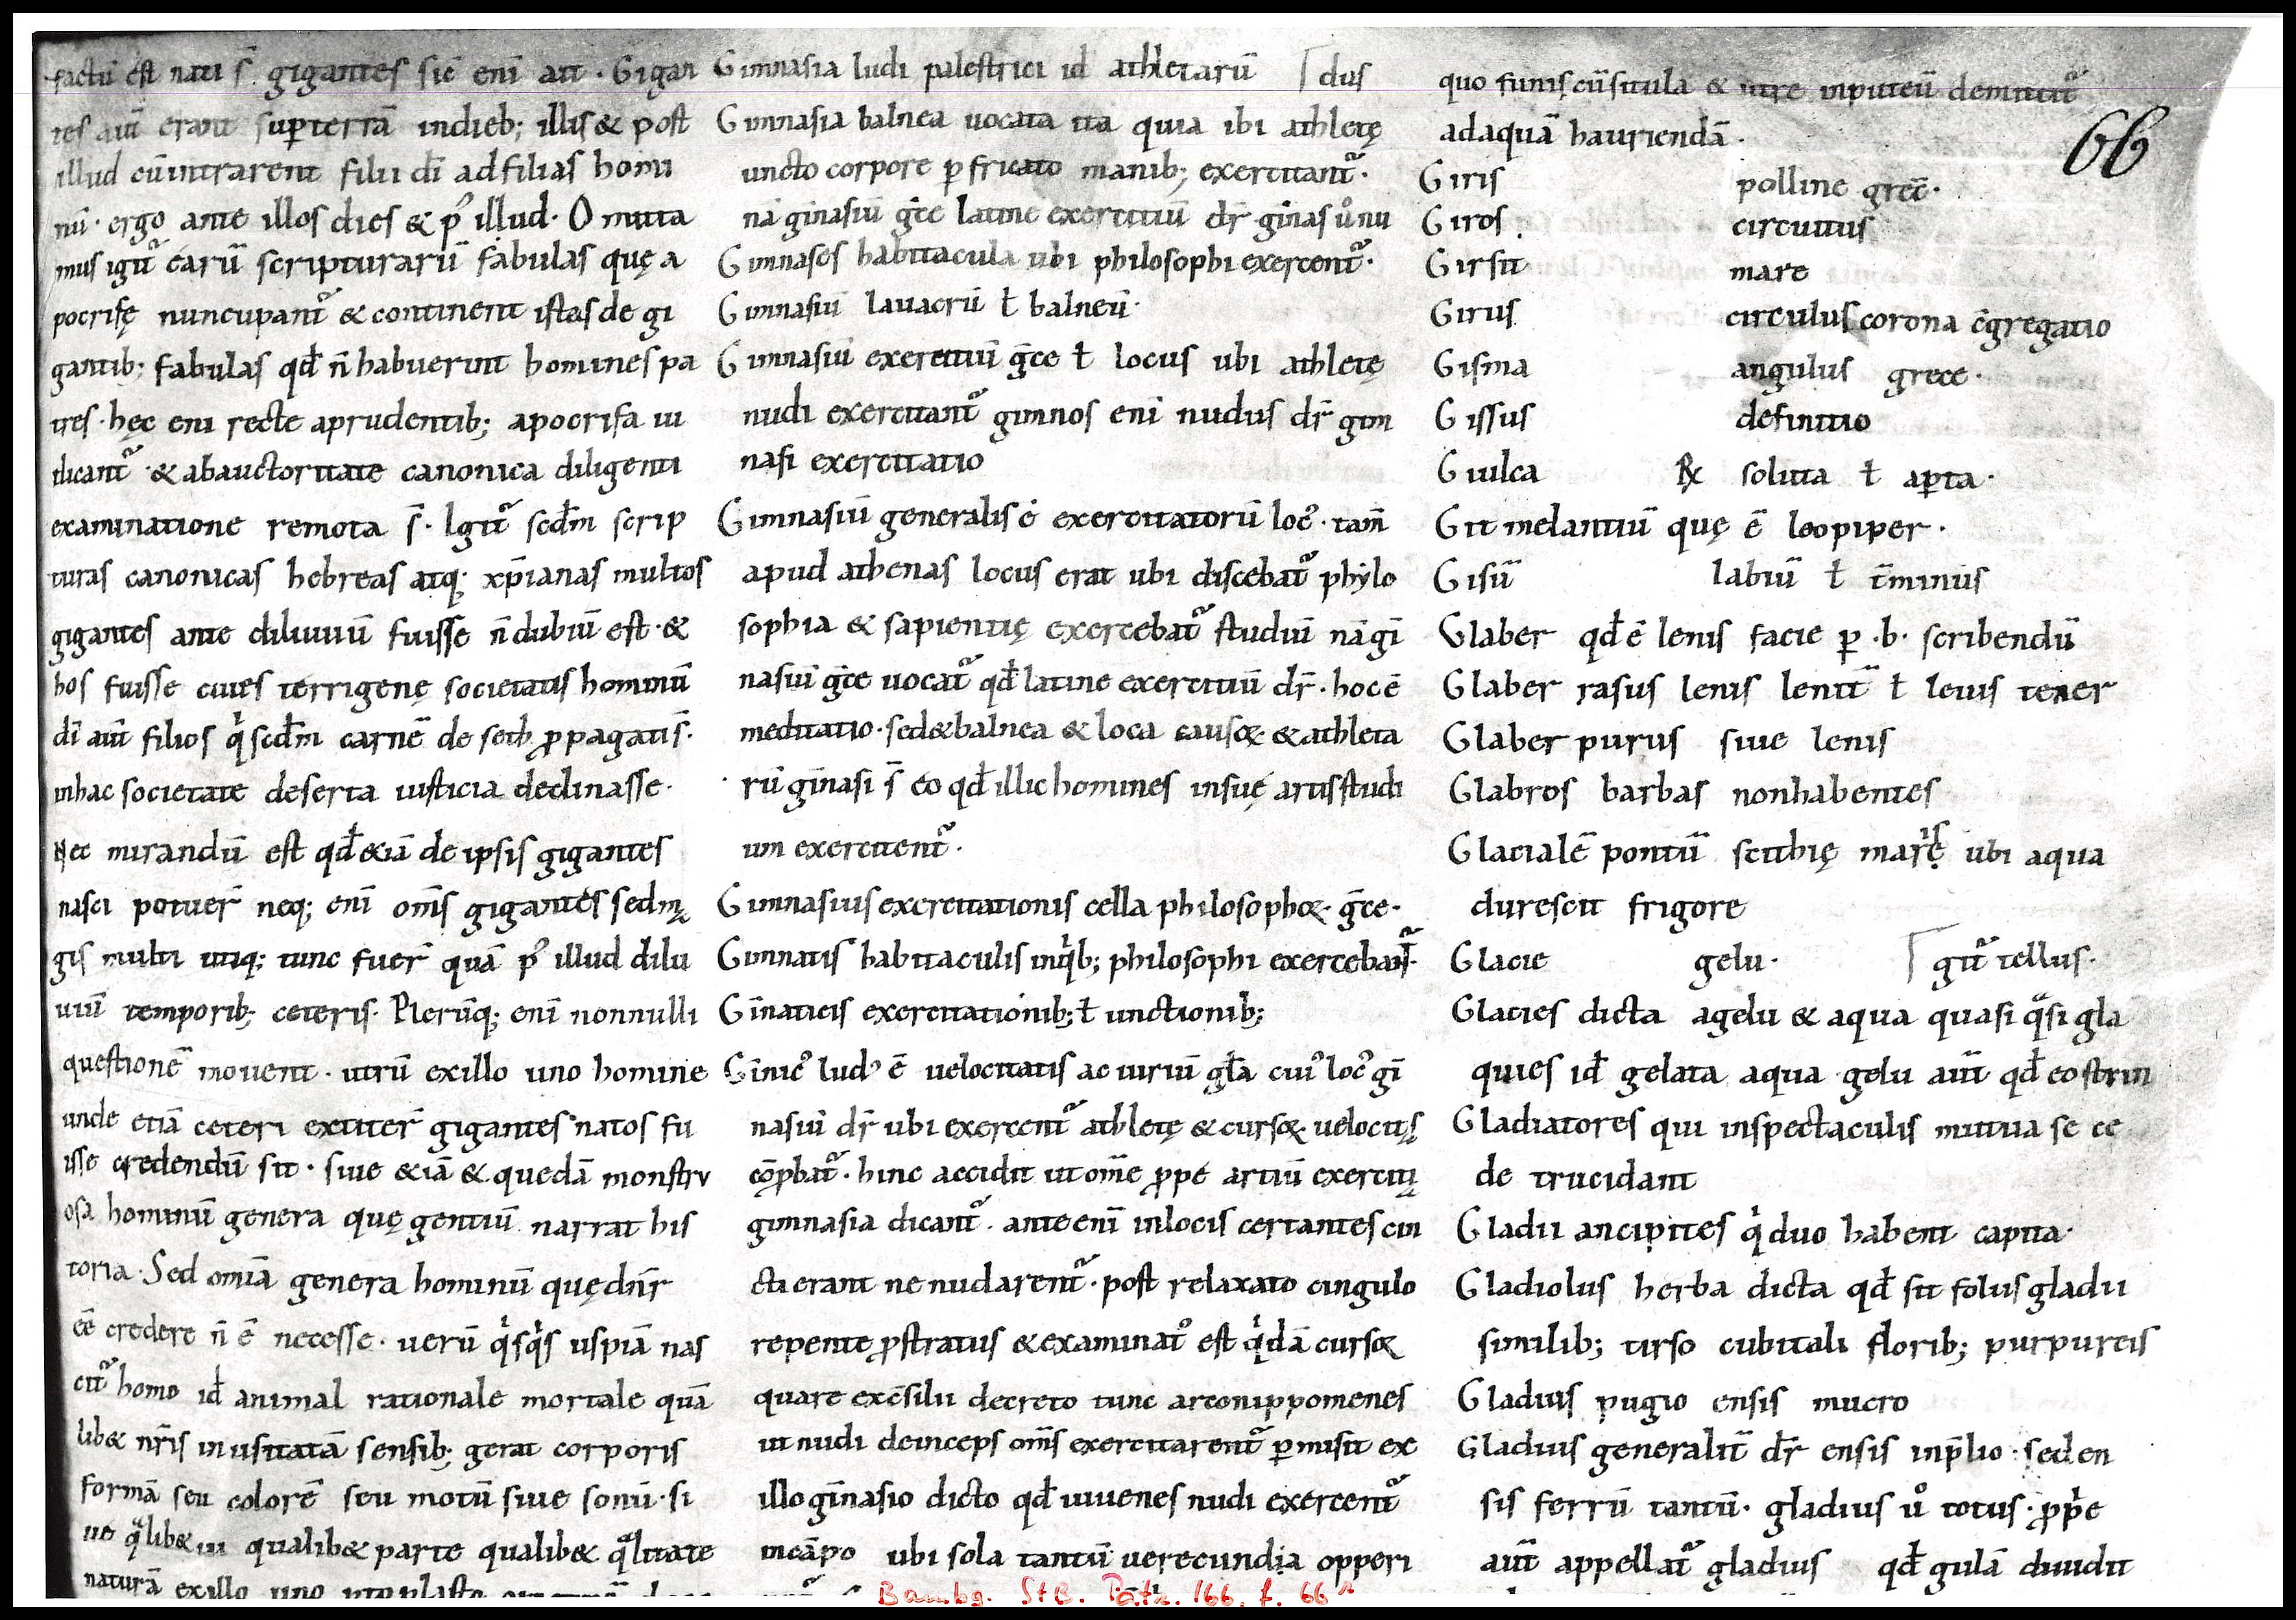 factū est nati s̄. gigantes sic̄ enī ait · Gigan
tes aūt erant sup terrā indieb; illis & post
illud cū intrarent filii dī ad filias homi
nū · ergo ante illos dies & p' illud · O mitta
mus igit̄ earū scripturarū fabulas quę a
pocrifę nuncupant̄ & continent istas de gi
gantib; fabulas qđ n̄ habuerint homines pa
tres · hęc eni recte a prudentib; apocrifa iu
dicant̄ · & ab auctoritate canonica diligenti
examinatione remota s̄ · Igit̄ scđm scrip
turas canonicas hebreas atq; xp̄ianas multos
gigantes ante diluuiū fuisse n̄ dubiū est · &
hos fuisse ciues terrigenę societatis hominū
dī aūt filios qͥ scđm carnē de seth ꝓpagati s̄ ·
in hac societate deserta iusticia declinasse ·
Nec mirandū est qđ &iā de ipsis gigantes
nasci potuer̄ neq; enī om̄s gigantes sed m
gis multi utiq; tunc fuer̄ quā p' illud dilu
uiū temporib; ceteris · Plerūq; enī nonnulli
questionē mouent · utrū ex illo uno homine
unde etiā ceteri extiter̄ gigantes natos fu
isse credendū sit · siue &iā & quedā monstru
osa hominū genera quę gentiū narrat his
toria · Sed om̄ia genera hominū quę dn̄r
eē credere n̄ ē necesse · uerū qͥsqͥs uspiā nas
cit̄ homo id animal rationale mortale quā
lib& nr̄is inusitatā sensib; gerat corporis
formā seu colorē seu motū siue sonū · si
ue qͣlib& ui qualib& parte qualib& qͣlitate
naturā ex illo uno
Gimnasia ludi palestrici id athletarū ⌈dus
Gimnasia balnea uocata ita quia ibi athletę
uncto corpore p fricato manib; exercitant̄ ·
nā ginasiū gr̄ce latine exercitiū dr̄ · ginas ů nu
Gimnasos habitacula ubi philosophi exercent̄ ·
Gimnasiū lauacrū ł balneū ·
Gimnasiū exercitiū gr̄ce ł locus ubi athletę
nudi exercitant̄ gimnos eni nudus dr̄ gim
nasi exercitatio
Gimnasiū generalis ē exercitatorū loc' · tam̄
apud athenas locus erat ubi discebat̄ phylo
sophia & sapientię exercebat̄ studiū nā gī
nasiū gr̄ce uocat̄ qđ latine exercitiū dr̄ · hoc ē
meditatio · sed & balnea & loca cursoꝝ & athleta
rū gīnasi s̄ eo qđ illic homines in suę artis studi
um exercitent̄ ·
Gimnasius exercitationis cella philosophoꝝ · gr̄ce ·
Gimnatis habitaculis in qͥb; philosophi exercebant̄ ·
Gīnaticis exercitationib; ł unctionib;
Gīnic' lud' ē uelocitatis ac uiriū gła cui' loc' gī
nasiū dr̄ ubi exercent̄ athletę & cursoꝝ uelocitas
cōꝓbat̄ · hinc accidit ut om̄e ꝓpe artiū exercitia
gimnasia dicant̄ · ante enī in locis certantes cin
cti erant ne nudarent̄ · post relaxato cingulo
repente ꝓstratus & examinat' est qͥdā cursoꝝ
quare ex c̄silii decreto tunc arconippomenes
ut nudi deinceps om̄s exercitarent̄ p misit ex
illo gīnasio dicto qđ iuuenes nudi exercent̄
in cāpo ubi sola tantū uerecundia opperi
quo funis cū situla & utre in puteū demittit̄
ad aquā hauriendā ·
Giris polline grec̄ ·
Giros circuitus
Girsit mare
Girus circulus corona c̄gregatio
Gisma angulus grece ·
Gissus definitio
Giulca ℞ soluta ł apta ·
Git melantiū quę ē loopiper ·
Gisū labiū ł t̄minus
Glaber qđ ē lenis facie p · b · scribendū
Glaber rasus lenis lenit̄ ł leuis tener
Glaber purus siue lenis
Glabros barbas non habentes
Glacialē pontū scithię marę ubi aqua
durescit frigore
Glacie gelu · ⌈git̄ tellus ·
Glacies dicta a gelu & aqua quasi qͣsi gla
quies id gelata aqua gelu aūt qđ eo strin
Gladiatores qui in spectaculis mutua se ce
de trucidant
Gladii ancipites qͥ duo habent capita ·
Gladiolus herba dicta qđ sit folus gladii
similib; tirso cubitali florib; purpureis
Gladius pugio ensis mucro
Gladius generalit̄ dr̄ ensis in p̄lio · sed en
sis ferrū tantū · gladius ů totus · ꝓpͥe
aūt appellat̄ gladius qđ gulā diuidit
66
Bambg. StB. Patr. 166, f. 66ʳ